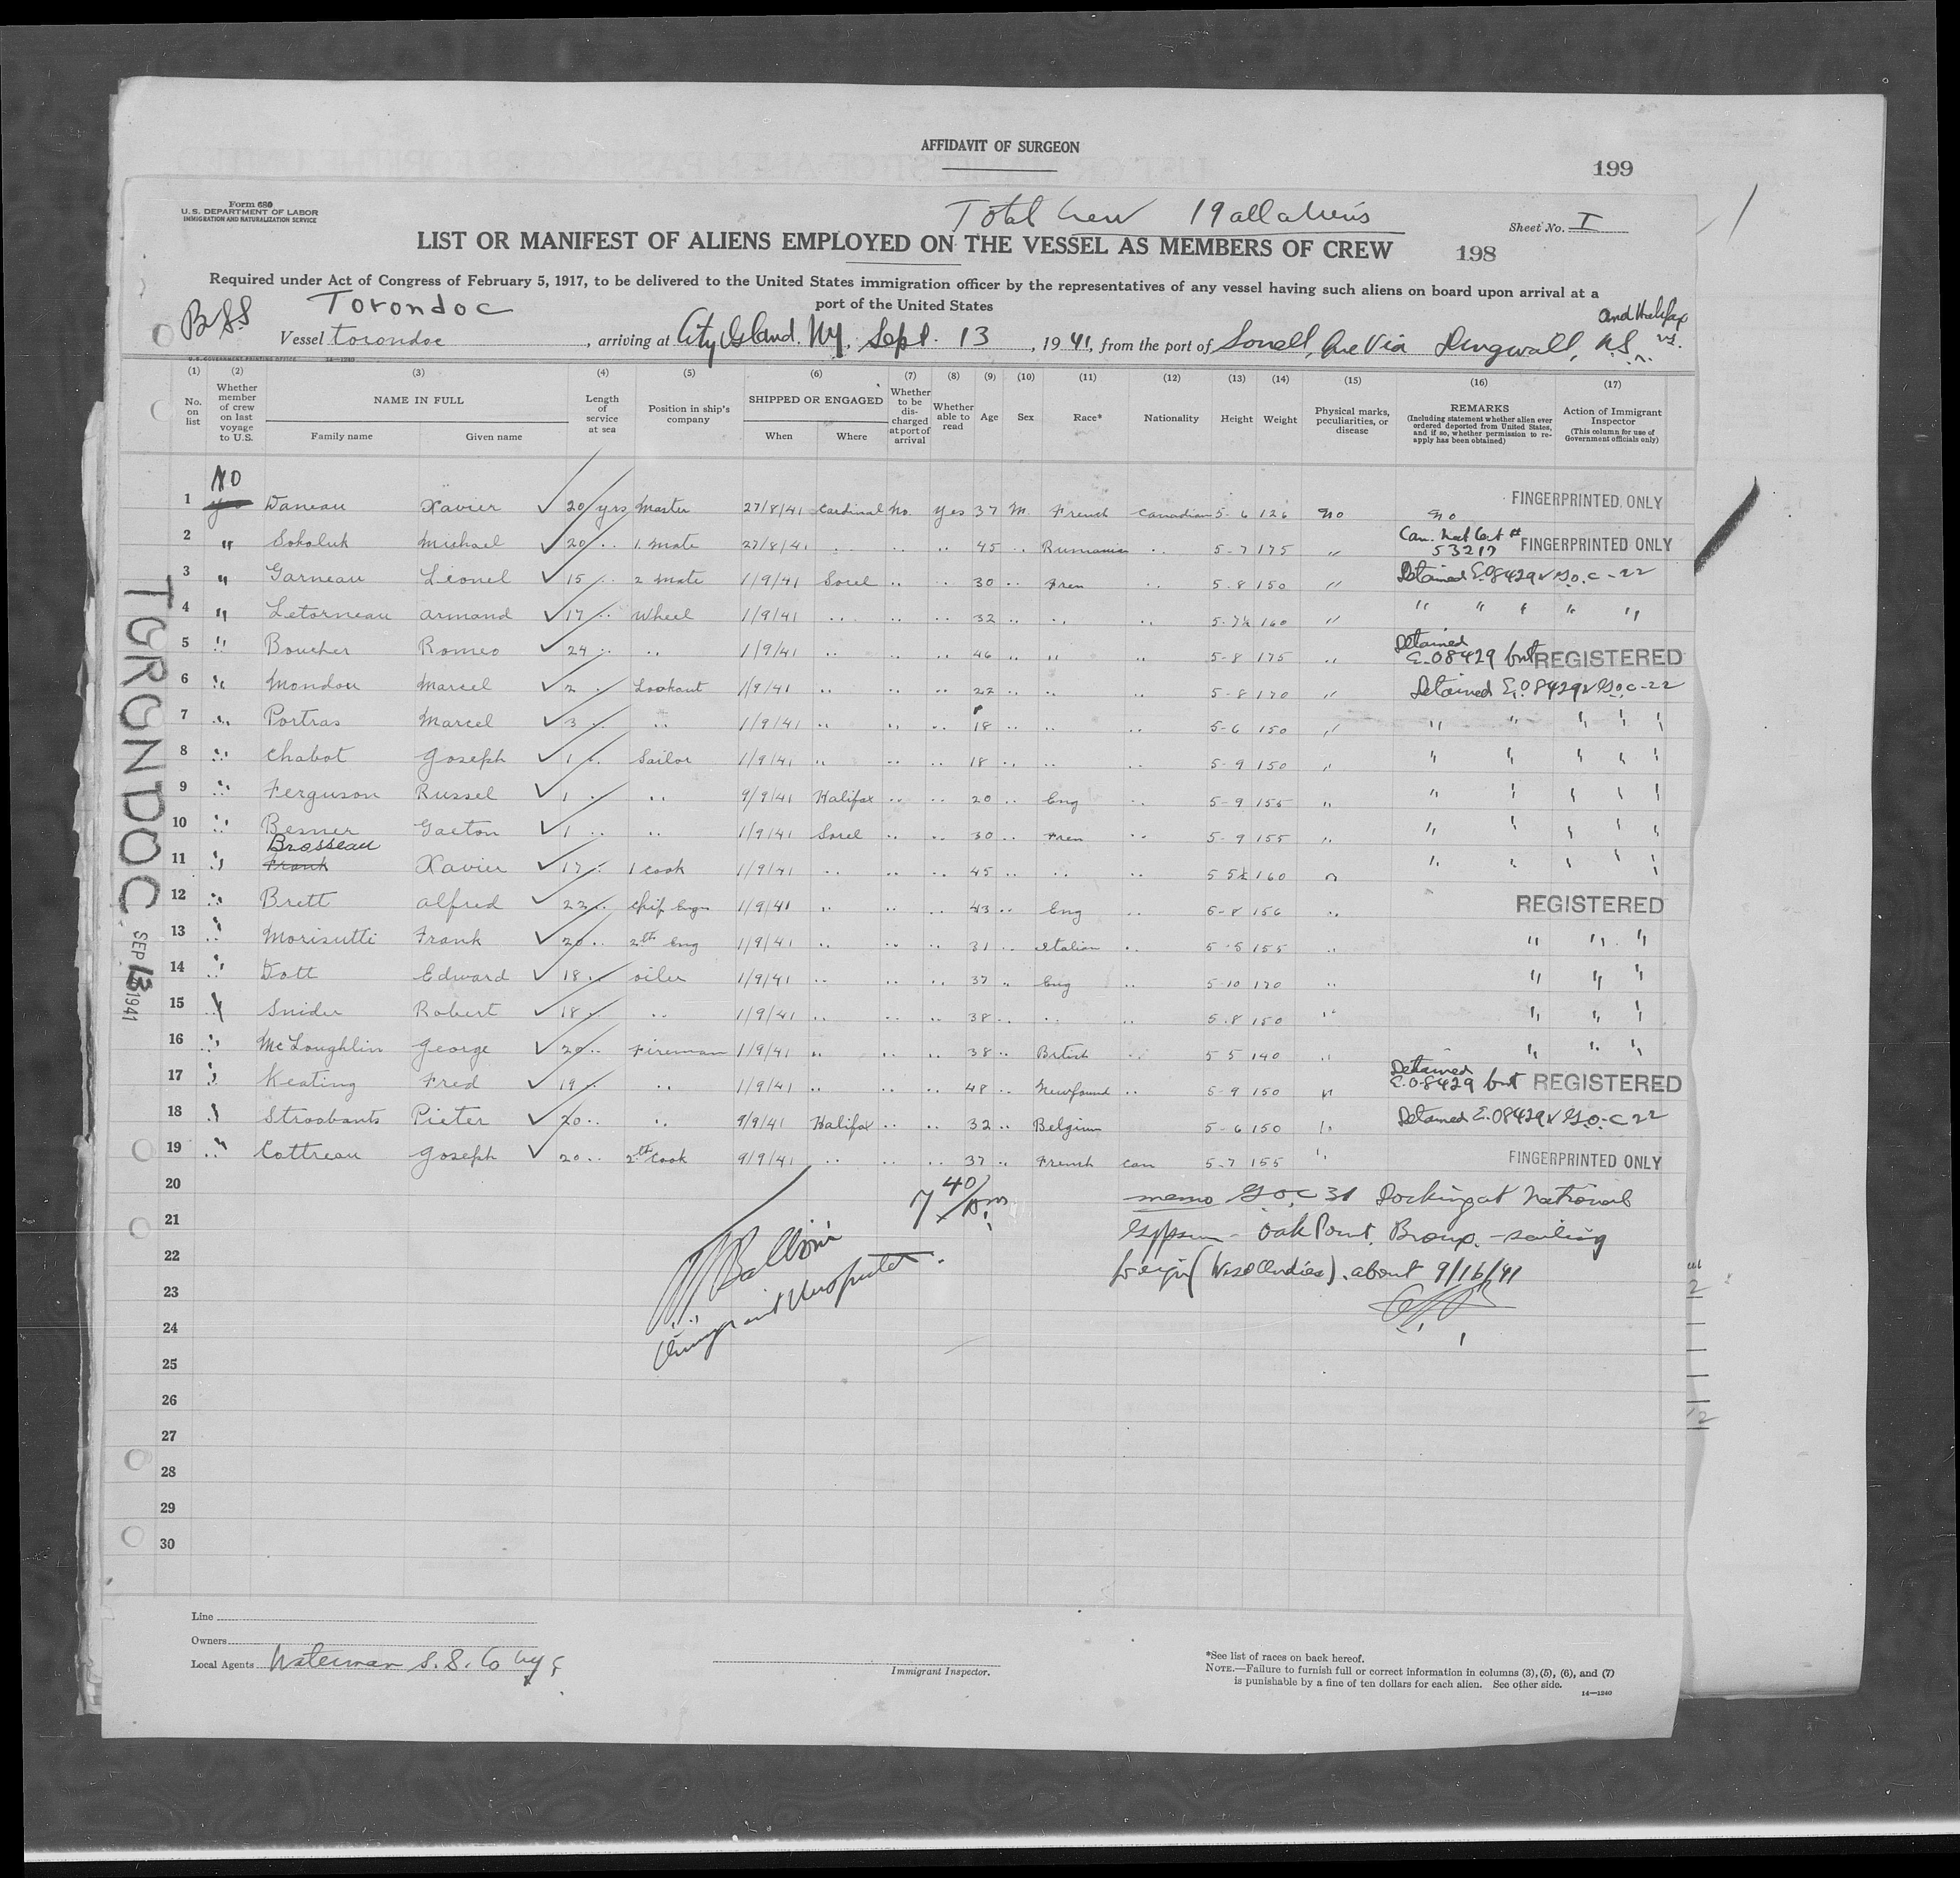 AFFIDAVIT OF SURGEON
199
Form 680
U.S. DEPARTMENT OF LABOR
IMMIGRATION AND NATURALIZATION SERVICE
Total Crew 19 all aliens
Sheet No. I
LIST OR MANIFEST OF ALIENS EMPLOYED ON THE VESSEL AS MEMBERS OF CREW
198
Required under Act of Congress of February 5, 1917, to be delivered to the United States immigration officer by the representatives of any vessel having such aliens on board upon arrival at a
port of the United States
BSS Torondoc
and Halifax
Vessel Torondoc, arriving at City Island, NY, Sept. 13, 1941, from the port of Via Dingwall, N.S.
U.S. GOVERNMENT PRINTING OFFICE 14-1240
(1) (2) (3) (4) (5) (6) (7) (8) (9) (10) (11) (12) (13) (14) (15) (16) (17)
No. on list
Whether member of crew on last voyage to U.S.
NAME IN FULL
Family name
Given name
Length of service at sea
Position in ship's company
SHIPPED OR ENGAGED
When
Where
Whether to be discharged at port of arrival
Whether able to read
Age
Sex
Race*
Nationality
Height
Weight
Physical marks, peculiarities, or disease
REMARKS
(Including statement whether alien ever ordered deported from United States, and if so, whether permission to reapply has been obtained)
Action of Immigrant Inspector
(This column for use of Government officials only)
NO
1 yes Daneau Xavier 20 yrs Master 27/8/41 Cardinal No. Yes 37 M. French Canadian 5-6 126 No No FINGERPRINTED ONLY
2 " Sokoluk Michael 20 .. 1. Mate 27/8/41 .. .. .. 45 .. Rumanian .. 5-7 175 " Can. Nat Cert # 53217 FINGERPRINTED ONLY
3 " Garneau Lionel 15 .. 2 Mate 1/9/41 Sorel .. .. 30 .. Fren .. 5-8 150 " Detained E.O 8429 & G.O. C-22
4 " Letorneau Armand 17 .. Wheel 1/9/41 .. .. .. 32 .. .. .. 5-7½ 160 " " " " " "
5 " Boucher Romeo 24 .. .. 1/9/41 .. .. .. 46 .. " .. 5-8 175 .. Detained E.O 8429 but REGISTERED
6 " Mondou Marcel 2 .. Lookout 1/9/41 .. .. .. 22 .. .. .. 5-8 170 " Detained E.O 8429 & G.O. C-22
7 " Portras Marcel 3 .. .. 1/9/41 .. .. .. 18 .. .. .. 5-6 150 " " " " " "
8 " Chabot Joseph 1 .. Sailor 1/9/41 .. .. .. 18 .. .. .. 5-9 150 " " " " " "
9 " Ferguson Russel 1 .. .. 9/9/41 Halifax .. .. 20 .. Eng .. 5-9 155 " " " " " "
10 " Besner Gaeton 1 .. .. 1/9/41 Sorel .. .. 30 .. Fren .. 5-9 155 " " " " " "
Brosseau
11 " Frank Xavier 17 .. 1 Cook 1/9/41 .. .. .. 45 .. .. .. 5 5½ 160 " " " " " "
12 " Brett Alfred 22 .. Chif Engn 1/9/41 .. .. .. 43 .. Eng .. 5-8 156 .. REGISTERED
13 " Morisutti Frank 20 .. 2th Eng 1/9/41 .. .. .. 31 .. Italian .. 5-5 155 .. " " "
14 " Dott Edward 18 .. oiler 1/9/41 .. .. .. 37 .. Eng .. 5-10 170 .. " " "
15 " Snider Robert 18 .. .. 1/9/41 .. .. .. 38 .. .. .. 5-8 150 " " " "
16 " McLoughlin George 20 .. Fireman 1/9/41 .. .. .. 38 .. British .. 5 5 140 " " " "
17 " Keating Fred 19 .. .. 1/9/41 .. .. .. 48 .. Newfound .. 5-9 150 " Detained E.O 8429 but REGISTERED
18 " Stroobants Pieter 20 .. .. 9/9/41 Halifax .. .. 32 .. Belgium 5-6 150 " Detained E.O 8429 & G.O. C 22
19 " Cottreau Joseph 20 .. 2th Cook 9/9/41 .. .. .. 37 .. French Can 5-7 155 " FINGERPRINTED ONLY
20
21
22
23
24
25
26
27
28
29
30
7 40/ pm
Immigrant Inspector
memo G.O.C 31 Docking at National
Gypsum - Oak Point, Bronx, - sailing
foreign (West Indies). about 9/16/41
TORONDOC
SEP 13 1941
Line
Owners
Local Agents Waterman S.S. Co NYC
Immigrant Inspector.
*See list of races on back hereof.
NOTE.—Failure to furnish full or correct information in columns (3), (5), (6), and (7)
is punishable by a fine of ten dollars for each alien. See other side.
14-1240